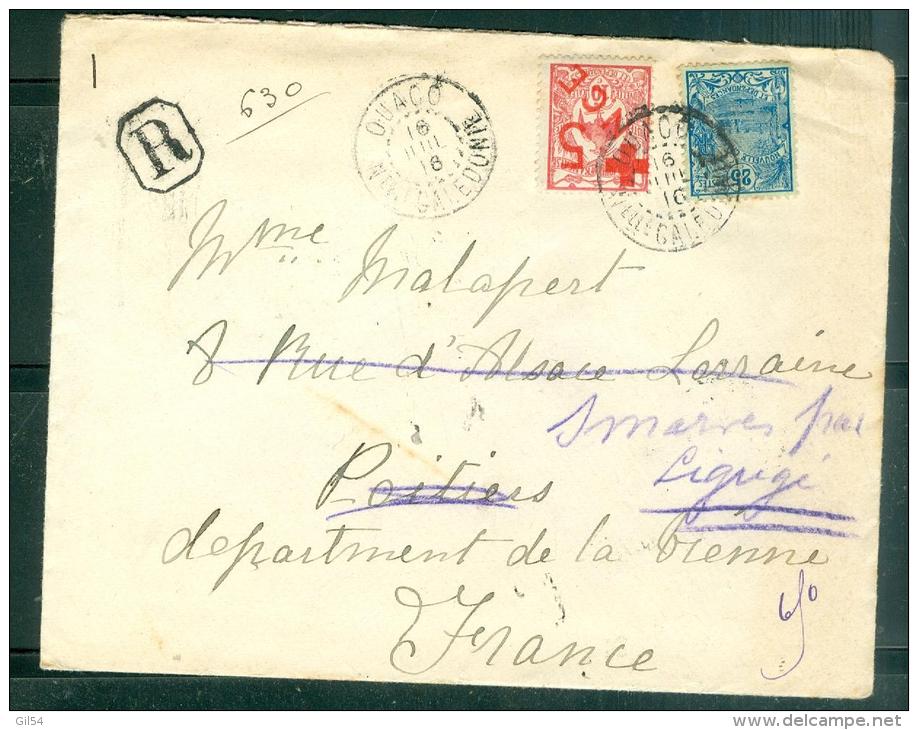 1
R
630
OUACO
16
JUIL
16
NLLE CALEDONIE
NCE
5
OUACO
16
JUIL
16
NLLE CALEDONIE
25
Mme Malapert
8 Rue d'Alsace Lorraine
Smarves par
Poitiers
Ligugé
department de la Vienne
France
Gil54
www.delcampe.net